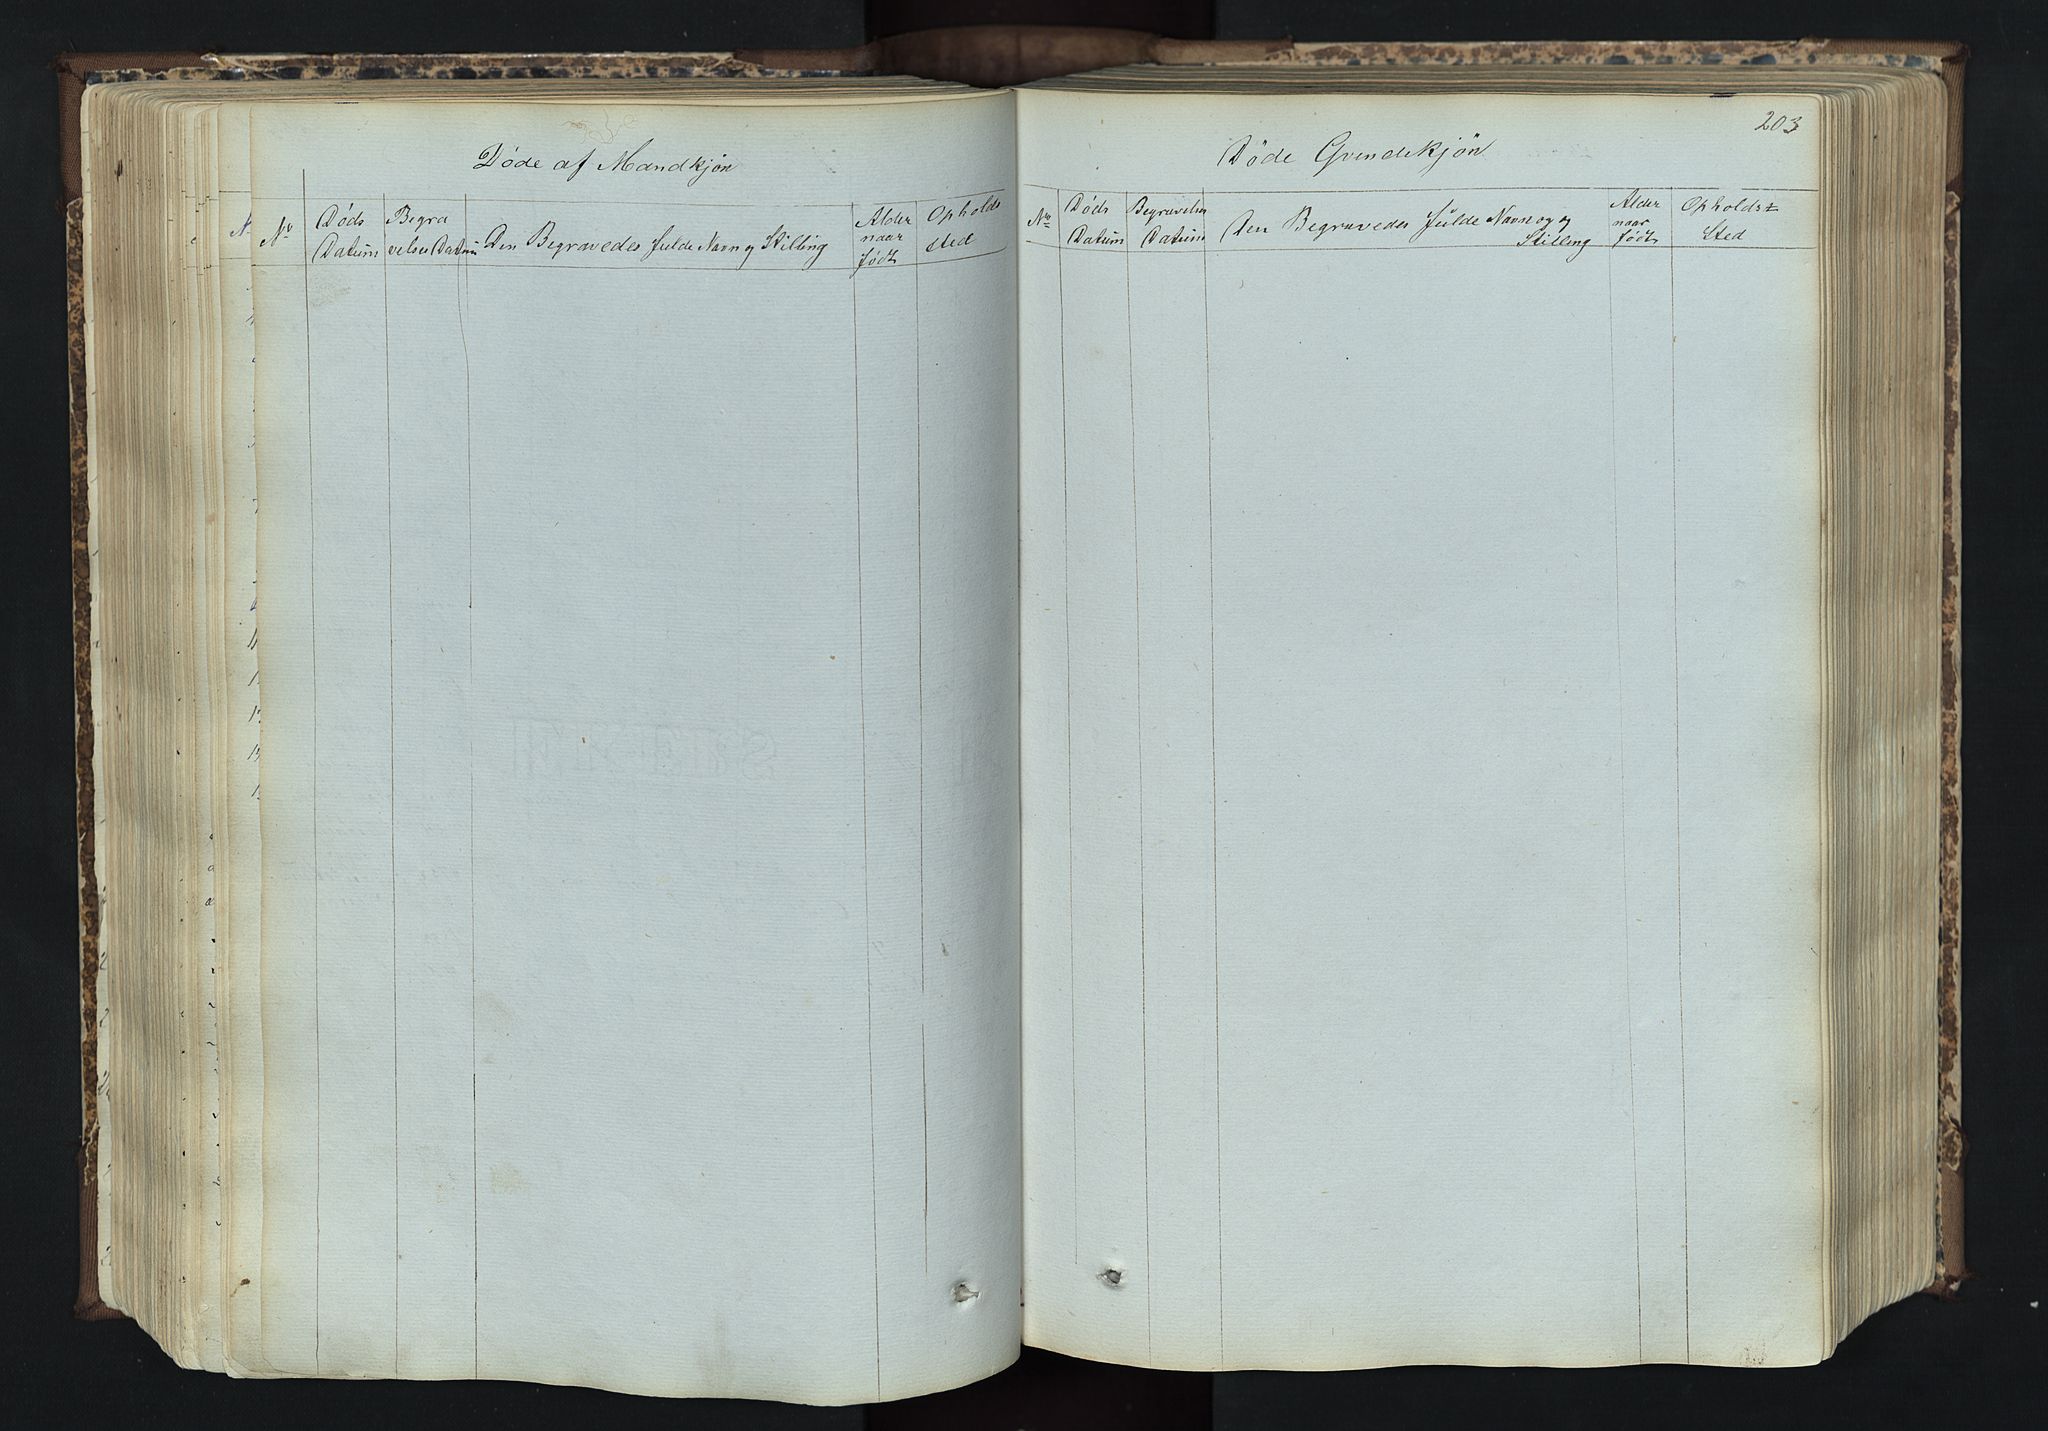 Døde af Mandkjøn
Nr
Døds
Datum
Begra
velses Datum
Den Begravedes fulde Navn og Stilling
Alder
naar
født
Opholds
sted
203
Døde Qvindekjön
No
Døds
Datum
Begravelses
Datum
Den Begravedes fulde Navn og og
Stilling
Alder
naar
født
Opholds
Sted